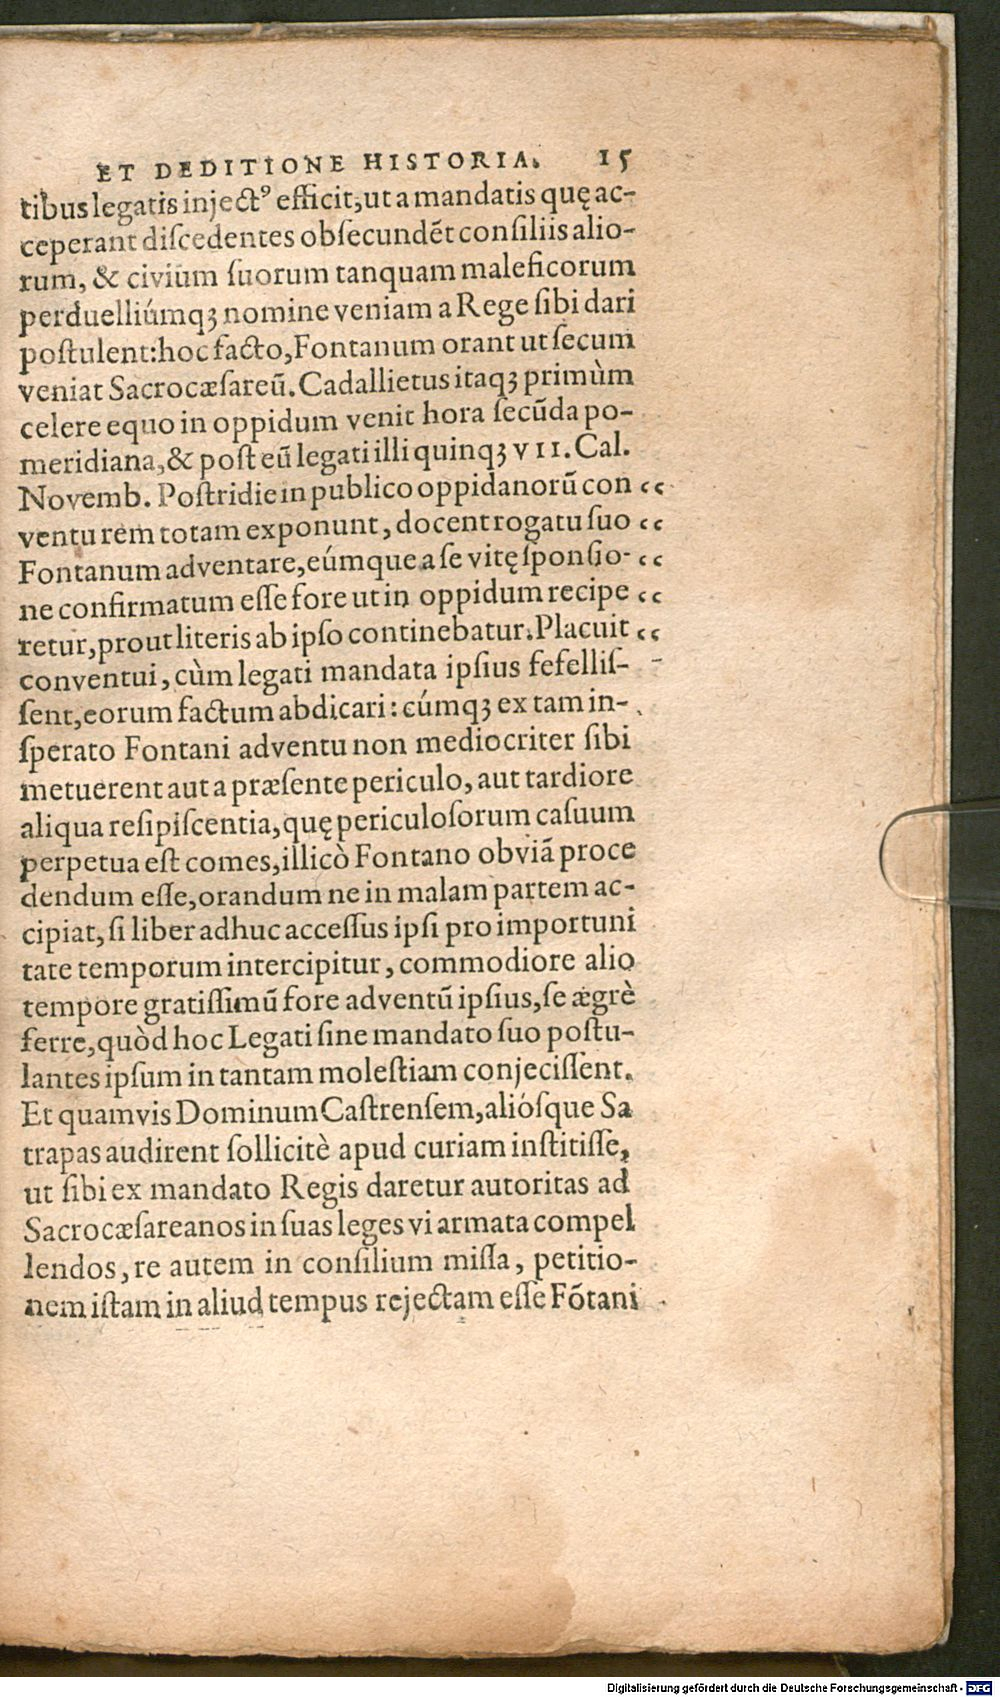 ET DEDITIONE HISTORIA. 15
tibus legatis inject⁹ efficit, ut a mandatis quę ac-
ceperant diſcedentes obſecundẽt conſiliis alio-
rum, & civium ſuorum tanquam maleficorum
perduelliúmqꝫ nomine veniam a Rege ſibi dari
poſtulent: hoc facto, Fontanum orant ut ſecum
veniat Sacrocæſareũ. Cadallietus itaqꝫ primùm
celere equo in oppidum venit hora ſecũda po-
meridiana, & poſt eũ legati illi quinqꝫ VII. Cal.
Novemb. Poſtridie in publico oppidanorũ con “
ventu rem totam exponunt, docent rogatu ſuo “
Fontanum adventare, eúmque a ſe vitę ſponſio- “
ne confirmatum eſſe fore ut in oppidum recipe “
retur, prout literis ab ipſo continebatur. Placuit “
conventui, cùm legati mandata ipſius fefelliſ-
ſent, eorum factum abdicari: cúmqꝫ ex tam in-
ſperato Fontani adventu non mediocriter ſibi
metuerent aut a præſente periculo, aut tardiore
aliqua reſipiſcentia, quę periculoſorum caſuum
perpetua eſt comes, illicò Fontano obviã proce
dendum eſſe, orandum ne in malam partem ac-
cipiat, ſi liber adhuc acceſſus ipſi pro importuni
tate temporum intercipitur, commodiore alio
tempore gratiſſimũ fore adventũ ipſius, ſe ægrè
ferre, quòd hoc Legati ſine mandato ſuo poſtu-
lantes ipſum in tantam moleſtiam conjeciſſent.
Et quamvis Dominum Caſtrenſem, aliósque Sa
trapas audirent ſollicitè apud curiam inſtitiſſe,
ut ſibi ex mandato Regis daretur autoritas ad
Sacrocæſareanos in ſuas leges vi armata compel
lendos, re autem in conſilium miſſa, petitio-
nem iſtam in aliud tempus rejectam eſſe Fõtani
Digitalisierung gefördert durch die Deutsche Forschungsgemeinschaft - DFG